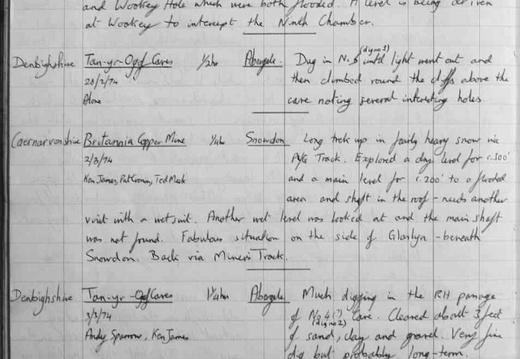 and Wookey Hole which were both flooded. A level is being driven
at Wookey to intercept the Ninth Chamber.
Denbighshire Tan-yr-Ogof Caves ½hr Abergele Dug in No.5 (dig no 3) until light went out and
28/2/74 then climbed round the cliffs above the
Alone cave noting several interesting holes.
Caernarvonshire Britannia Copper Mine Snowdon Long trek up in fairly heavy snow via
2/3/74 PYG Track. Explored a day level for c.100'
Ken James, Pat Cronin, Ted Meek and a main level for c.200' to a flooded
area and shaft in the roof - needs another
visit with a wetsuit. Another wet level was looked at and the main shaft
was not found. Fabulous situation on the side of Glaslyn - beneath
Snowdon. Back via Miners Track.
Denbighshire Tan-yr-Ogof Caves 1¼hrs Abergele Much digging in the RH passage
3/3/74 of No 4(?) Cave. Cleared about 3 feet
(dig no 2)
Andy Sparrow, Ken James of sand, clay and gravel. Very fine
dig but probably long-term.